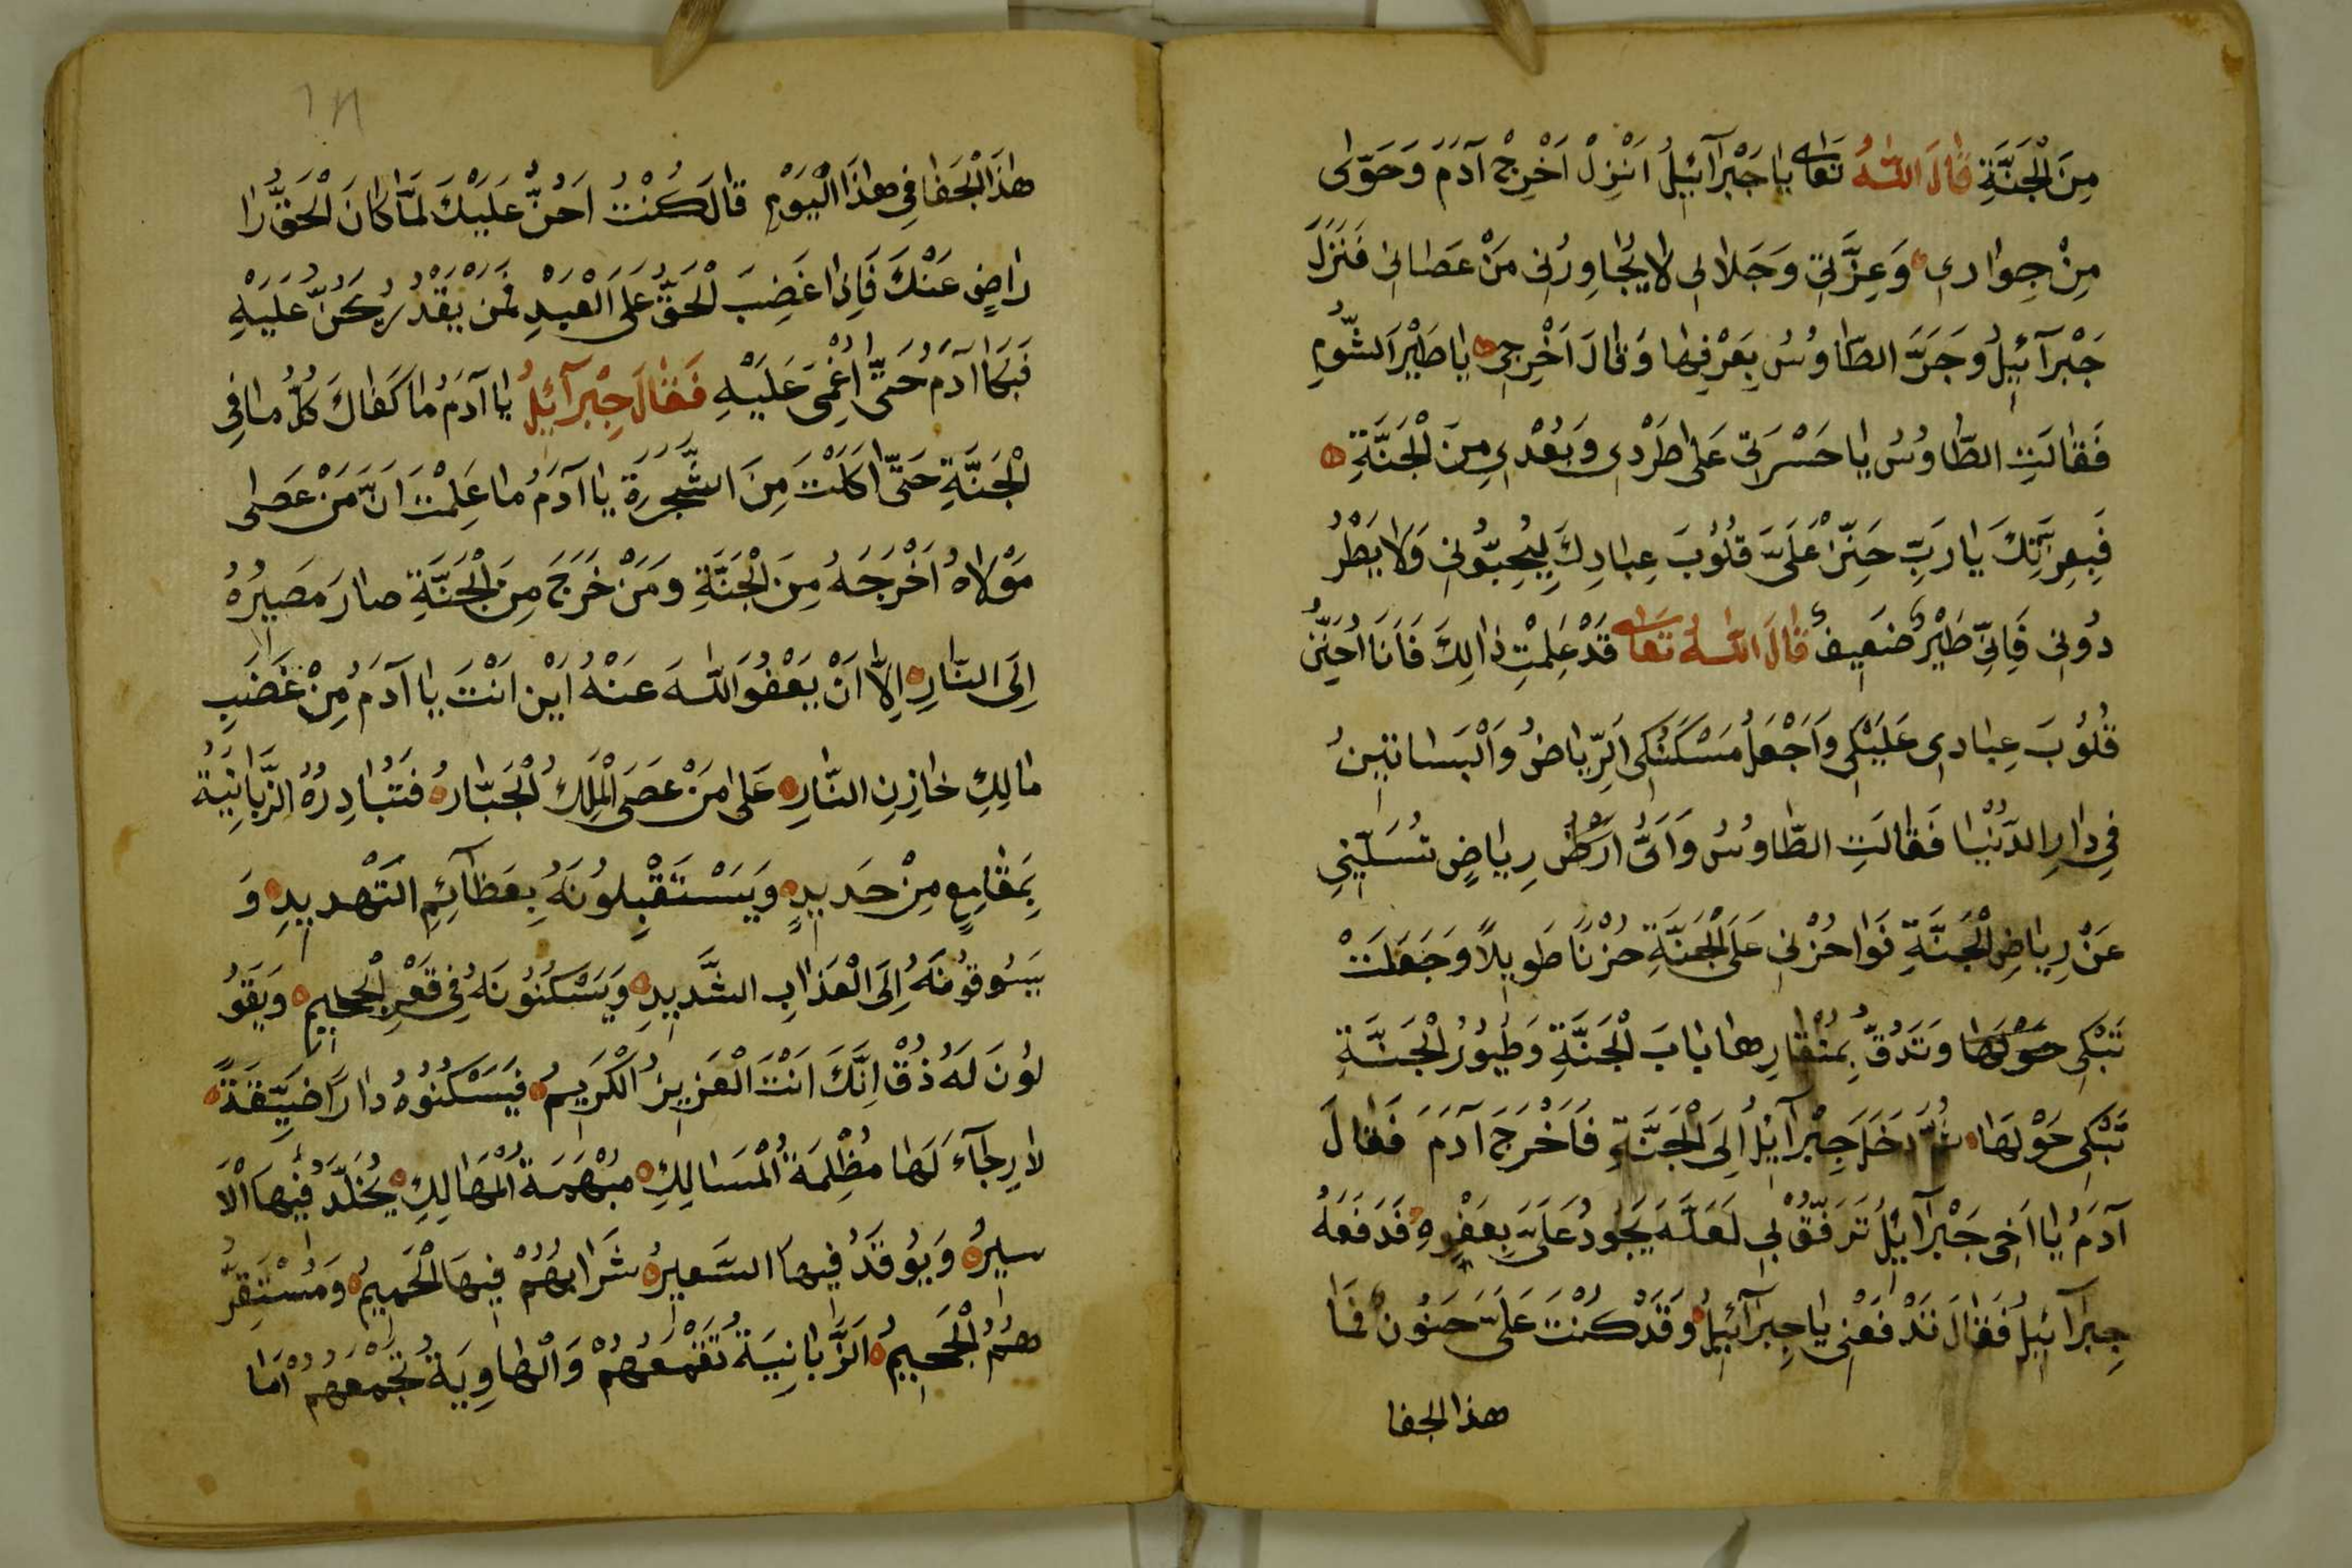 مِنَ الْجَنَّةِ قَالَ اللّٰهُ تَعَالٰى يَا جَبْرَآئِيلُ اَنْزِلْ اَخْرِجْ آدَمَ وَحَوّٰى
مِنْ جِوَارِى وَعِزَّتِى وَجَلَالِى لَا يُجَاوِرُنِى مَنْ عَصَانِى فَنَزَلَ
جَبْرَآئِيلُ وَجَرَّ الطَّاوُسُ بِعَرْفِهَا وَقَالَ اَخْرِجِى يَا طَيْرَ الشُّومِ
فَقَالَتِ الطَّاوُسُ يَا حَسْرَتِى عَلٰى طَرْدِى وَبُعْدِى مِنَ الْجَنَّةِ
فَبِعِزَّتِكَ يَا رَبِّ حَنِّنْ عَلَىَّ قُلُوبَ عِبَادِكَ لِيُحِبُّونِى وَلَا يَطْرُ
دُونِى فَاِنِّى طَيْرٌ ضَعِيفٌ قَالَ اللّٰهُ تَعَالٰى قَدْ عَلِمْتُ ذٰالِكَ فَاَنَا اُحَنِّنُ
قُلُوبَ عِبَادِى عَلَيْكِى وَاَجْعَلُ مَسْكَنُكِى اَلرِّيَاضُ وَالْبَسَاتِينُ
فِى دَارِ الدُّنْيَا فَقَالَتِ الطَّاوُسُ وَاَىُّ اَرْضٍ رِيَاضٍ تُسَلِّينِى
عَنْ رِيَاضِ الْجَنَّةِ فَوَا حُزْنِى عَلَى الْجَنَّةِ حُزْنًا طَوِيلاً وَجَعَلَتْ
تَبْكِى حَوْلَهَا وَتَدُقُّ بِمِنْقَارِهَا بَابَ الْجَنَّةِ وَطُيُورُ الْجَنَّةِ
تَبْكِى حَوْلَهَا ثُمَّ دَخَلَ جِبْرَآئِلُ اِلَى الْجَنَّةِ فَاَخْرَجَ آدَمَ فَقَالَ
آدَمُ يَا اَخِى جَبْرَآئِلُ تَرَفَّقْ بِى لَعَلَّهُ يَجُودُ عَلَىَّ بِعَفْوِهِ فَدَفَعَهُ
جِبْرَآئِيلُ فَقَالَ تَدْفَعْنِى يَا جِبْرَآئِيلُ وَقَدْ كُنْتَ عَلَىَّ حَنُونٌ فَمَا
هذا الجفا
هٰذَا الْجَفَا فِى هٰذَا الْيَوْمِ قَالَ كُنْتُ اَحِنُّ عَلَيْكَ لَمَّا كَانَ الْحَقُّ رَا
رَاضٍ عَنْكَ فَاِذَا غَضِبَ الْحَقُّ عَلَى الْعَبْدِ فَمَنْ يَقْدُرُ يَحِنُّ عَلَيْهِ
فَبَكَا آدَمُ حَتّٰى اُغْمِىَ عَلَيْهِ فَقَالَ جِبْرَآئِيلُ يَا آدَمُ مَا كَفَاكَ كُلُّ مَا فِى
الْجَنَّةِ حَتّٰى اَكَلْتَ مِنَ الشَّجَرَةِ يَا آدَمُ مَا عَلِمْتَ اَنَّ مَنْ عَصٰى
مَوْلَاهُ اَخْرَجَهُ مِنَ الْجَنَّةِ وَمَنْ خَرَجَ مِنَ الْجَنَّةِ صَارَ مَصِيرُهُ
اِلَى النَّارِ اِلَّا اَنْ يَعْفُوَ اللّٰهُ عَنْهُ اَيْنَ اَنْتَ يَا آدَمُ مِنْ غَضَبِ
مَالِكِ خَازِنِ النَّارِ عَلٰى مَنْ عَصَى الْمَلِكُ الْجَبَّارُ فَتُبَادِرُهُ الزَّبَانِيَةُ
بِمَقَامِعٍ مِنْ حَدِيدٍ وَيَسْتَقْبِلُونَهُ بِعَظَآئِمِ التَّهْدِيدِ وَ
يَسُوقُونَهُ اِلَى الْعَذَابِ الشَّدِيدِ وَيَسْكُنُونَهُ فِى قَعْرِ الْجَحِيمِ وَيَقُو
لُونَ لَهُ ذُقْ اِنَّكَ اَنْتَ الْعَزِيزُ الْكَرِيمُ فَيَسْكُنُوهُ دَارًا ضَيِّقَةً
لَا رِجَآءَ لَهَا مُظْلِمَةُ الْمَسَالِكِ مُبْهَمَةُ الْمَهَالِكِ يُخَلَّدُ فِيهَا الْاَ
سِيرُ وَيُوقَدُ فِيهَا السَّعِيرُ شَرَابُهُمْ فِيهَا الْحَمِيمُ وَمُسْتَقَرُّ
هُمُ الْجَحِيمُ اَلزَّبَانِيَةُ تَقْمَعُهُمْ وَالْهَاوِيَةُ تَجْمَعُهُمْ اَمَا